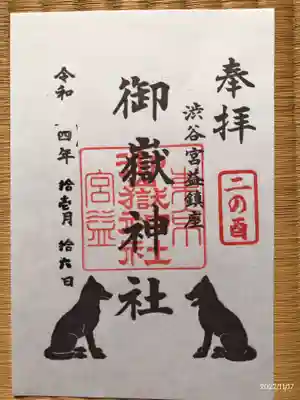 奉拝
二の酉
渋谷宮益鎮座
御嶽神社
宮益
御嶽神社
令和 四年 拾壱月 拾六日
2022/11/17